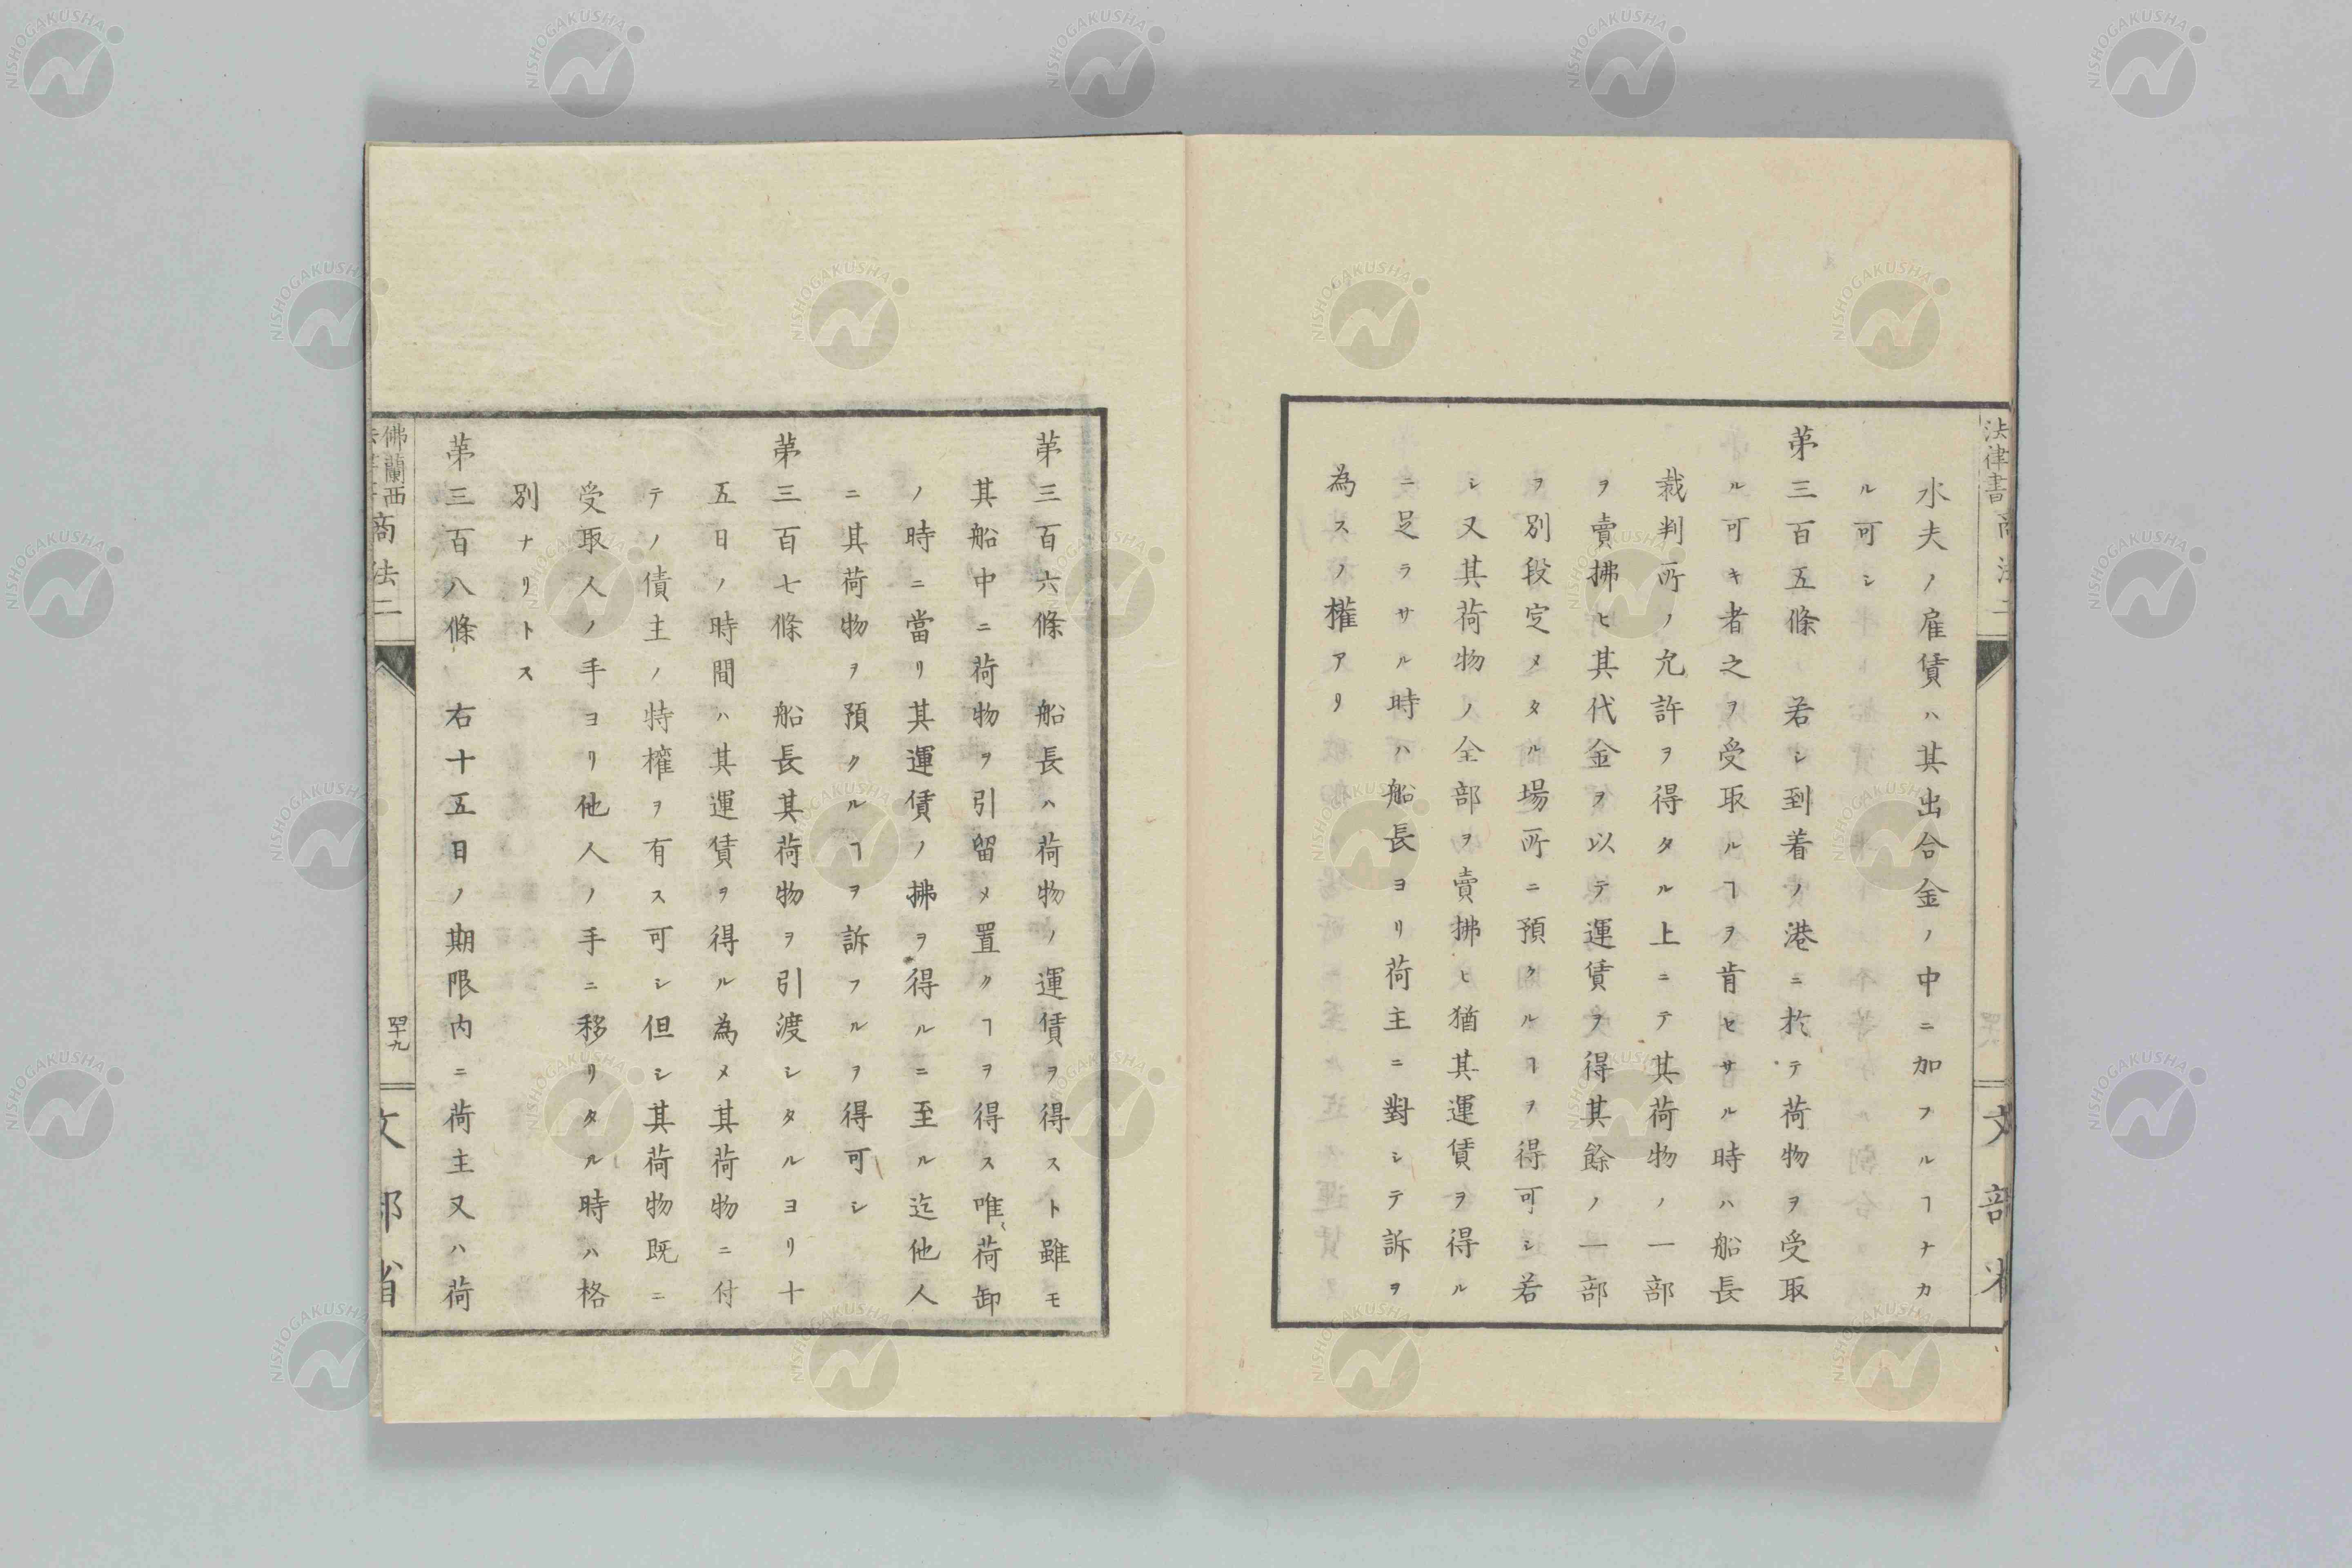 法律書 商法二
文部省
水夫ノ雇賃ハ其出合金ノ中ニ加フルヿナカ
ル可シ
第三百五條 若シ到着ノ港ニ於テ荷物ヲ受取
ル可キ者之ヲ受取ルヿヲ肯セサル時ハ船長
裁判所ノ允許ヲ得タル上ニテ其荷物ノ一部
ヲ賣拂ヒ其代金ヲ以テ運賃ヲ得其餘ノ一部
ヲ別段定メタル場所ニ預クルヿヲ得可シ若
シ又其荷物ノ全部ヲ賣拂ヒ猶其運賃ヲ得ル
ニ足ラサル時ハ船長ヨリ荷主ニ對シテ訴ヲ
為スノ權アリ
第三百六條 船長ハ荷物ノ運賃ヲ得スト雖モ
其船中ニ荷物ヲ引留メ置クヿヲ得ス唯荷卸
ノ時ニ當リ其運賃ノ拂ヲ得ルニ至ル迄他人
ニ其荷物ヲ預クルヿヲ訴フルヲ得可シ
第三百七條 船長其荷物ヲ引渡シタルヨリ十
五日ノ時間ハ其運賃ヲ得ル為メ其荷物ニ付
テノ債主ノ特權ヲ有ス可シ但シ其荷物既ニ
受取人ノ手ヨリ他人ノ手ニ移リタル時ハ格
別ナリトス
第三百八條 右十五日ノ期限内ニ荷主又ハ荷
佛蘭西
商法二
四十九
文部省
NISHOGAKUSHA